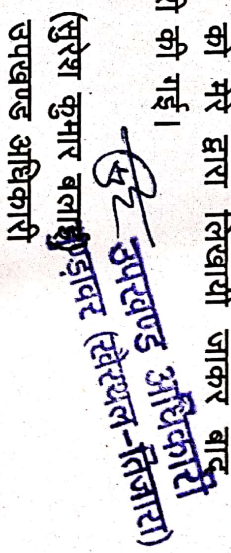 को मेरे द्वारा लिखायी जाकर बाद
की गई।
उपखण्ड अधिकारी
(सुरेश कुमार
मुण्डावर (खैरथल-तिजारा)
उपखण्ड अधिकारी